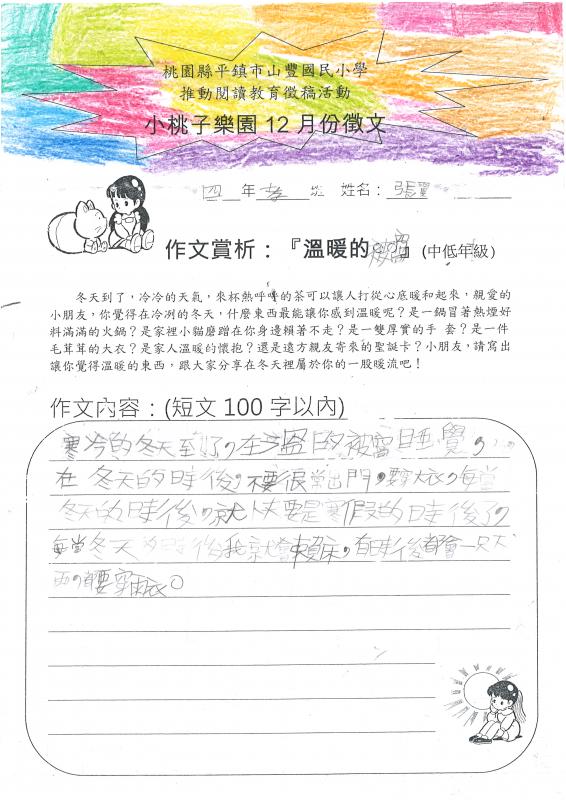 桃園縣平鎮市山豐國民小學
推動閱讀教育徵稿活動
小桃子樂園12月份徵文
四 年 孝 班 姓名：張
作文賞析：『溫暖的被窩』(中低年級)
冬天到了，冷冷的天氣，來杯熱呼嚕的茶可以讓人打從心底暖和起來，親愛的
小朋友，你覺得在冷冽的冬天，什麼東西最能讓你感到溫暖呢？是一鍋冒著熱煙好
料滿滿的火鍋？是家裡小貓磨蹭在你身邊賴著不走？是一雙厚實的手 套？是一件
毛茸茸的大衣？是家人溫暖的懷抱？還是遠方親友寄來的聖誕卡？小朋友，請寫出
讓你覺得溫暖的東西，跟大家分享在冬天裡屬於你的一股暖流吧！
作文內容：(短文100字以內)
寒冷的冬天到了，在溫的被窩睡覺，
在冬天的時後，不要很常出門，要穿大衣，每當
冬天的時後，就快要是寒假的時後了，
每當冬天的時後我就會賴床，有時後都會一只大
雨，都要穿雨衣。